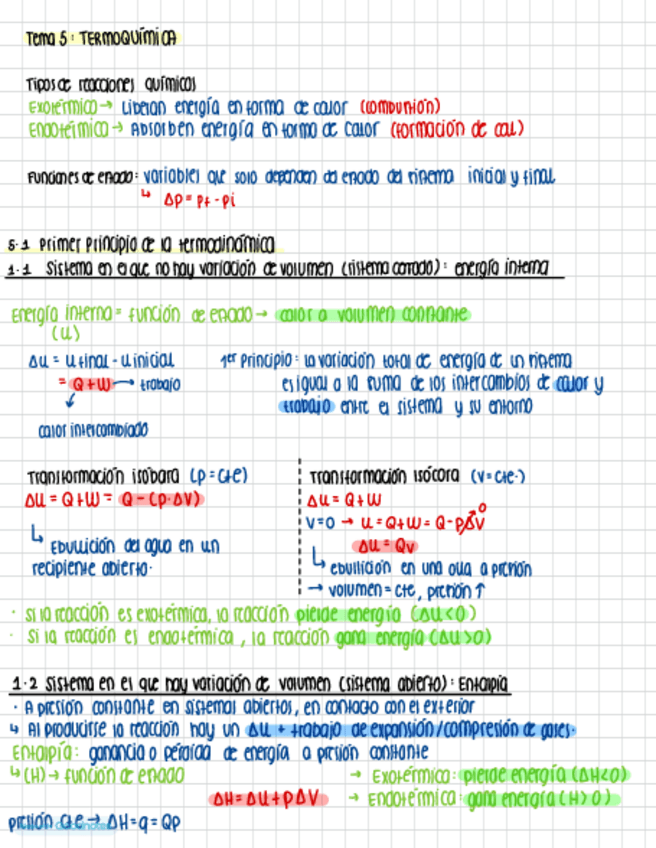 Tema 5: TERMOQUÍMICA
Tipos de reacciones químicas
Exotérmico → Liberan energía en forma de calor (combustión)
Endotérmico → Absorben energía en forma de calor (formación de cal)
Funciones de estado: variables que solo dependen del estado del sistema inicial y final
↳ Δp = pf - pi
5.1 Primer principio de la termodinámica
1.1 Sistema en el que no hay variación de volumen (sistema cerrado): energía interna
Energía interna = función de estado → calor a volumen constante
(U)
ΔU = U final - U inicial
= Q + W → trabajo
calor intercambiado
1er Principio: la variación total de energía de un sistema
es igual a la suma de los intercambios de calor y
trabajo entre el sistema y su entorno
Transformación isóbara (p = cte)
ΔU = Q + W = Q - (p·ΔV)
↳ Ebullición del agua en un
recipiente abierto.
Transformación isócora (v = cte.)
ΔU = Q + W
V=0 → U = Q + W = Q - pΔV 0
ΔU = Qv
↳ ebullición en una olla a presión
→ volumen = cte, presión ↑
· Si la reacción es exotérmica, la reacción pierde energía (ΔU<0)
· Si la reacción es endotérmica, la reacción gana energía (ΔU>0)
1.2 Sistema en el que hay variación de volumen (sistema abierto): Entalpía
· A presión constante en sistemas abiertos, en contacto con el exterior
↳ Al producirse la reacción hay un ΔU + trabajo de expansión/compresión de gases.
Entalpía: ganancia o pérdida de energía a presión constante
↳ (H) → función de estado
→ Exotérmica: pierde energía (ΔH<0)
ΔH = ΔU + pΔV → Endotérmica: gana energía (H>0)
presión cte → ΔH = q = Qp